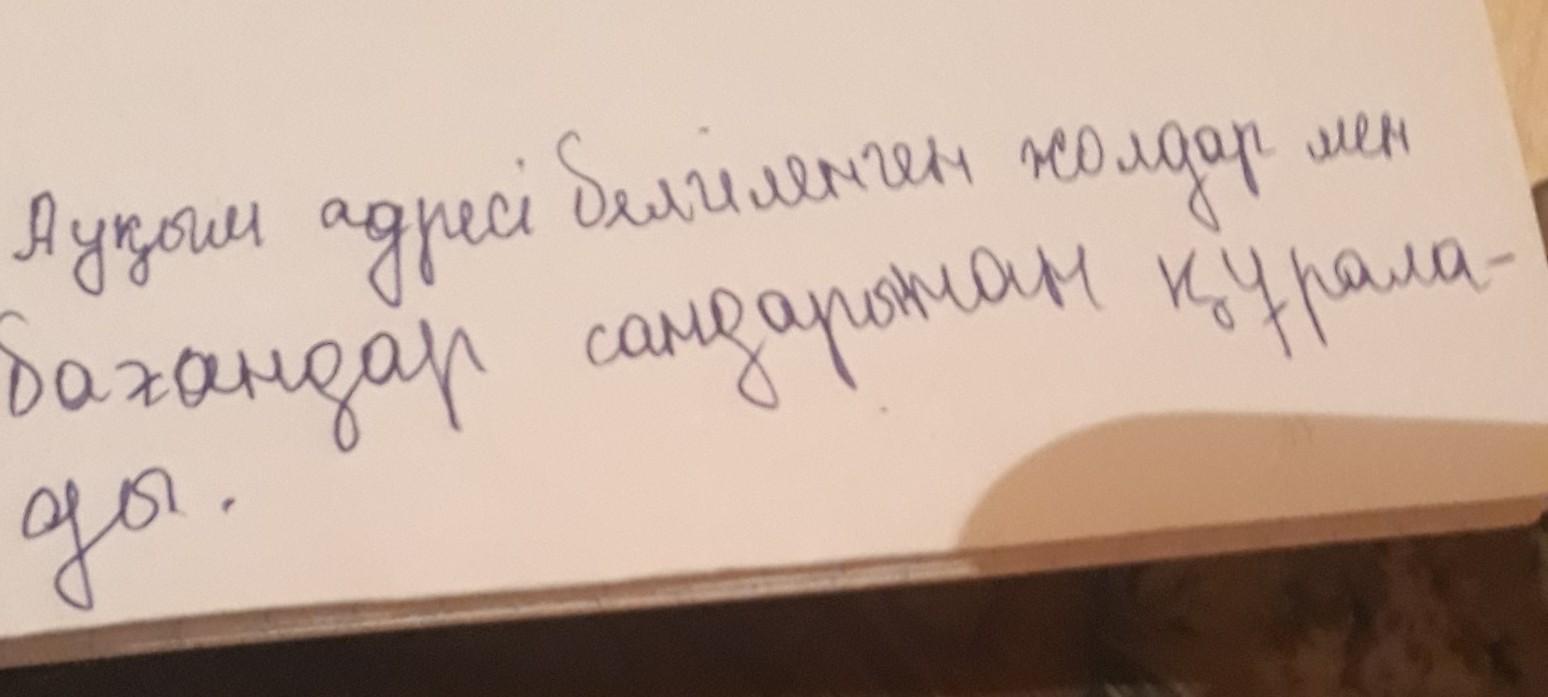 Ауқым адресі белгіленген жолдар мен
бағандар сандарынан құрала-
ды.